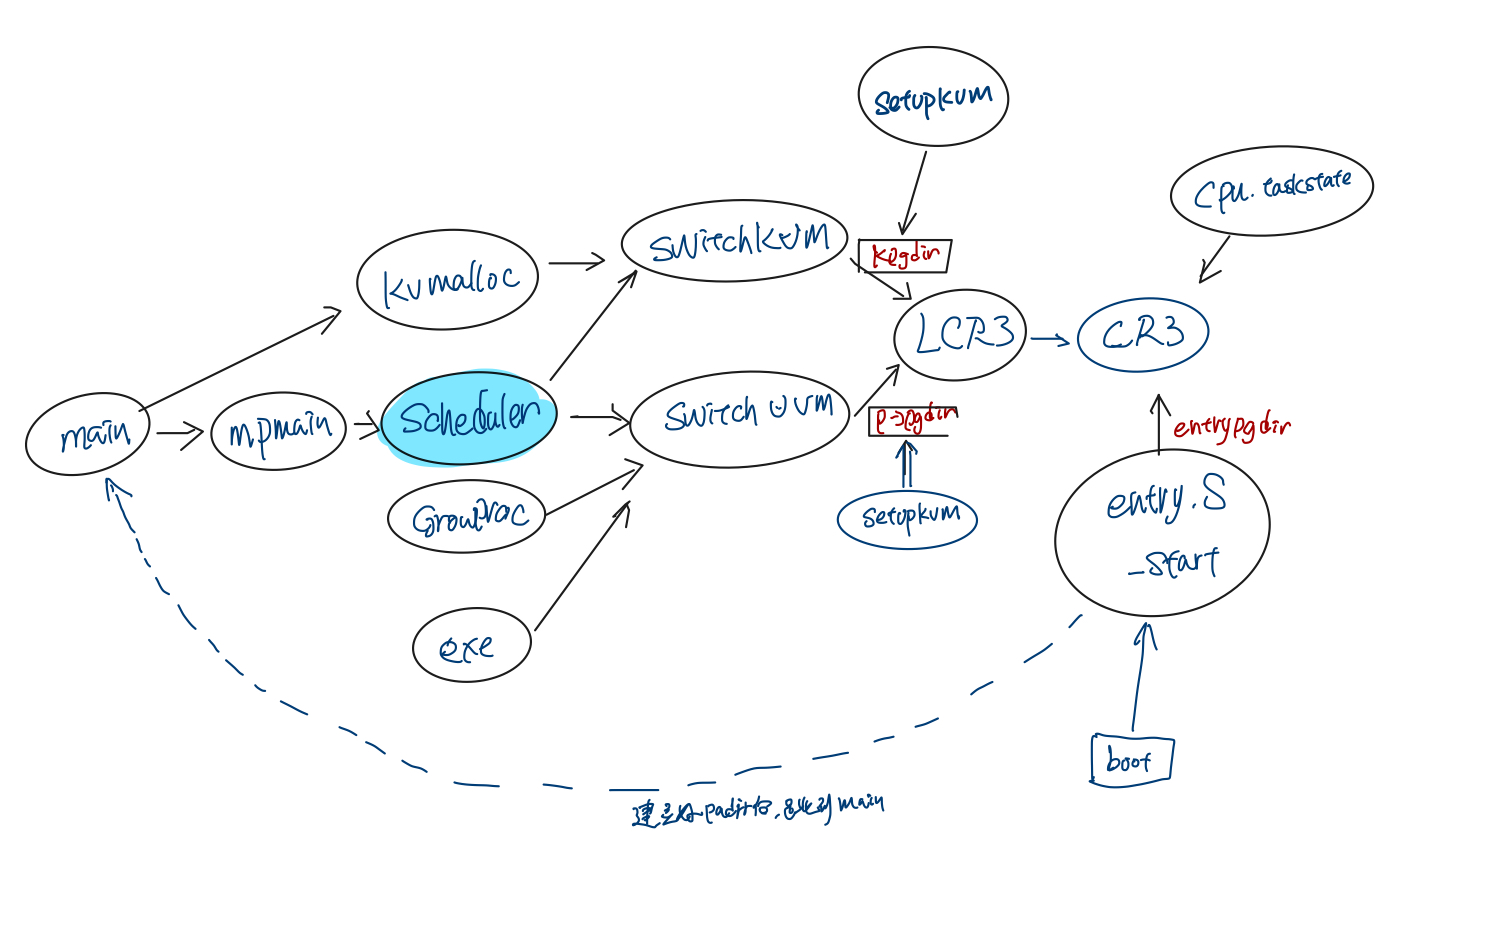 setupkvm
cpu.taskstate
switchkvm
kpgdir
kvmalloc
LCR3
CR3
scheduler
switch uvm
p->pgdir
main
mpmain
entrypgdir
Growproc
setupkvm
entry.S
_start
exe
boot
建立好pgdir后,跳到main